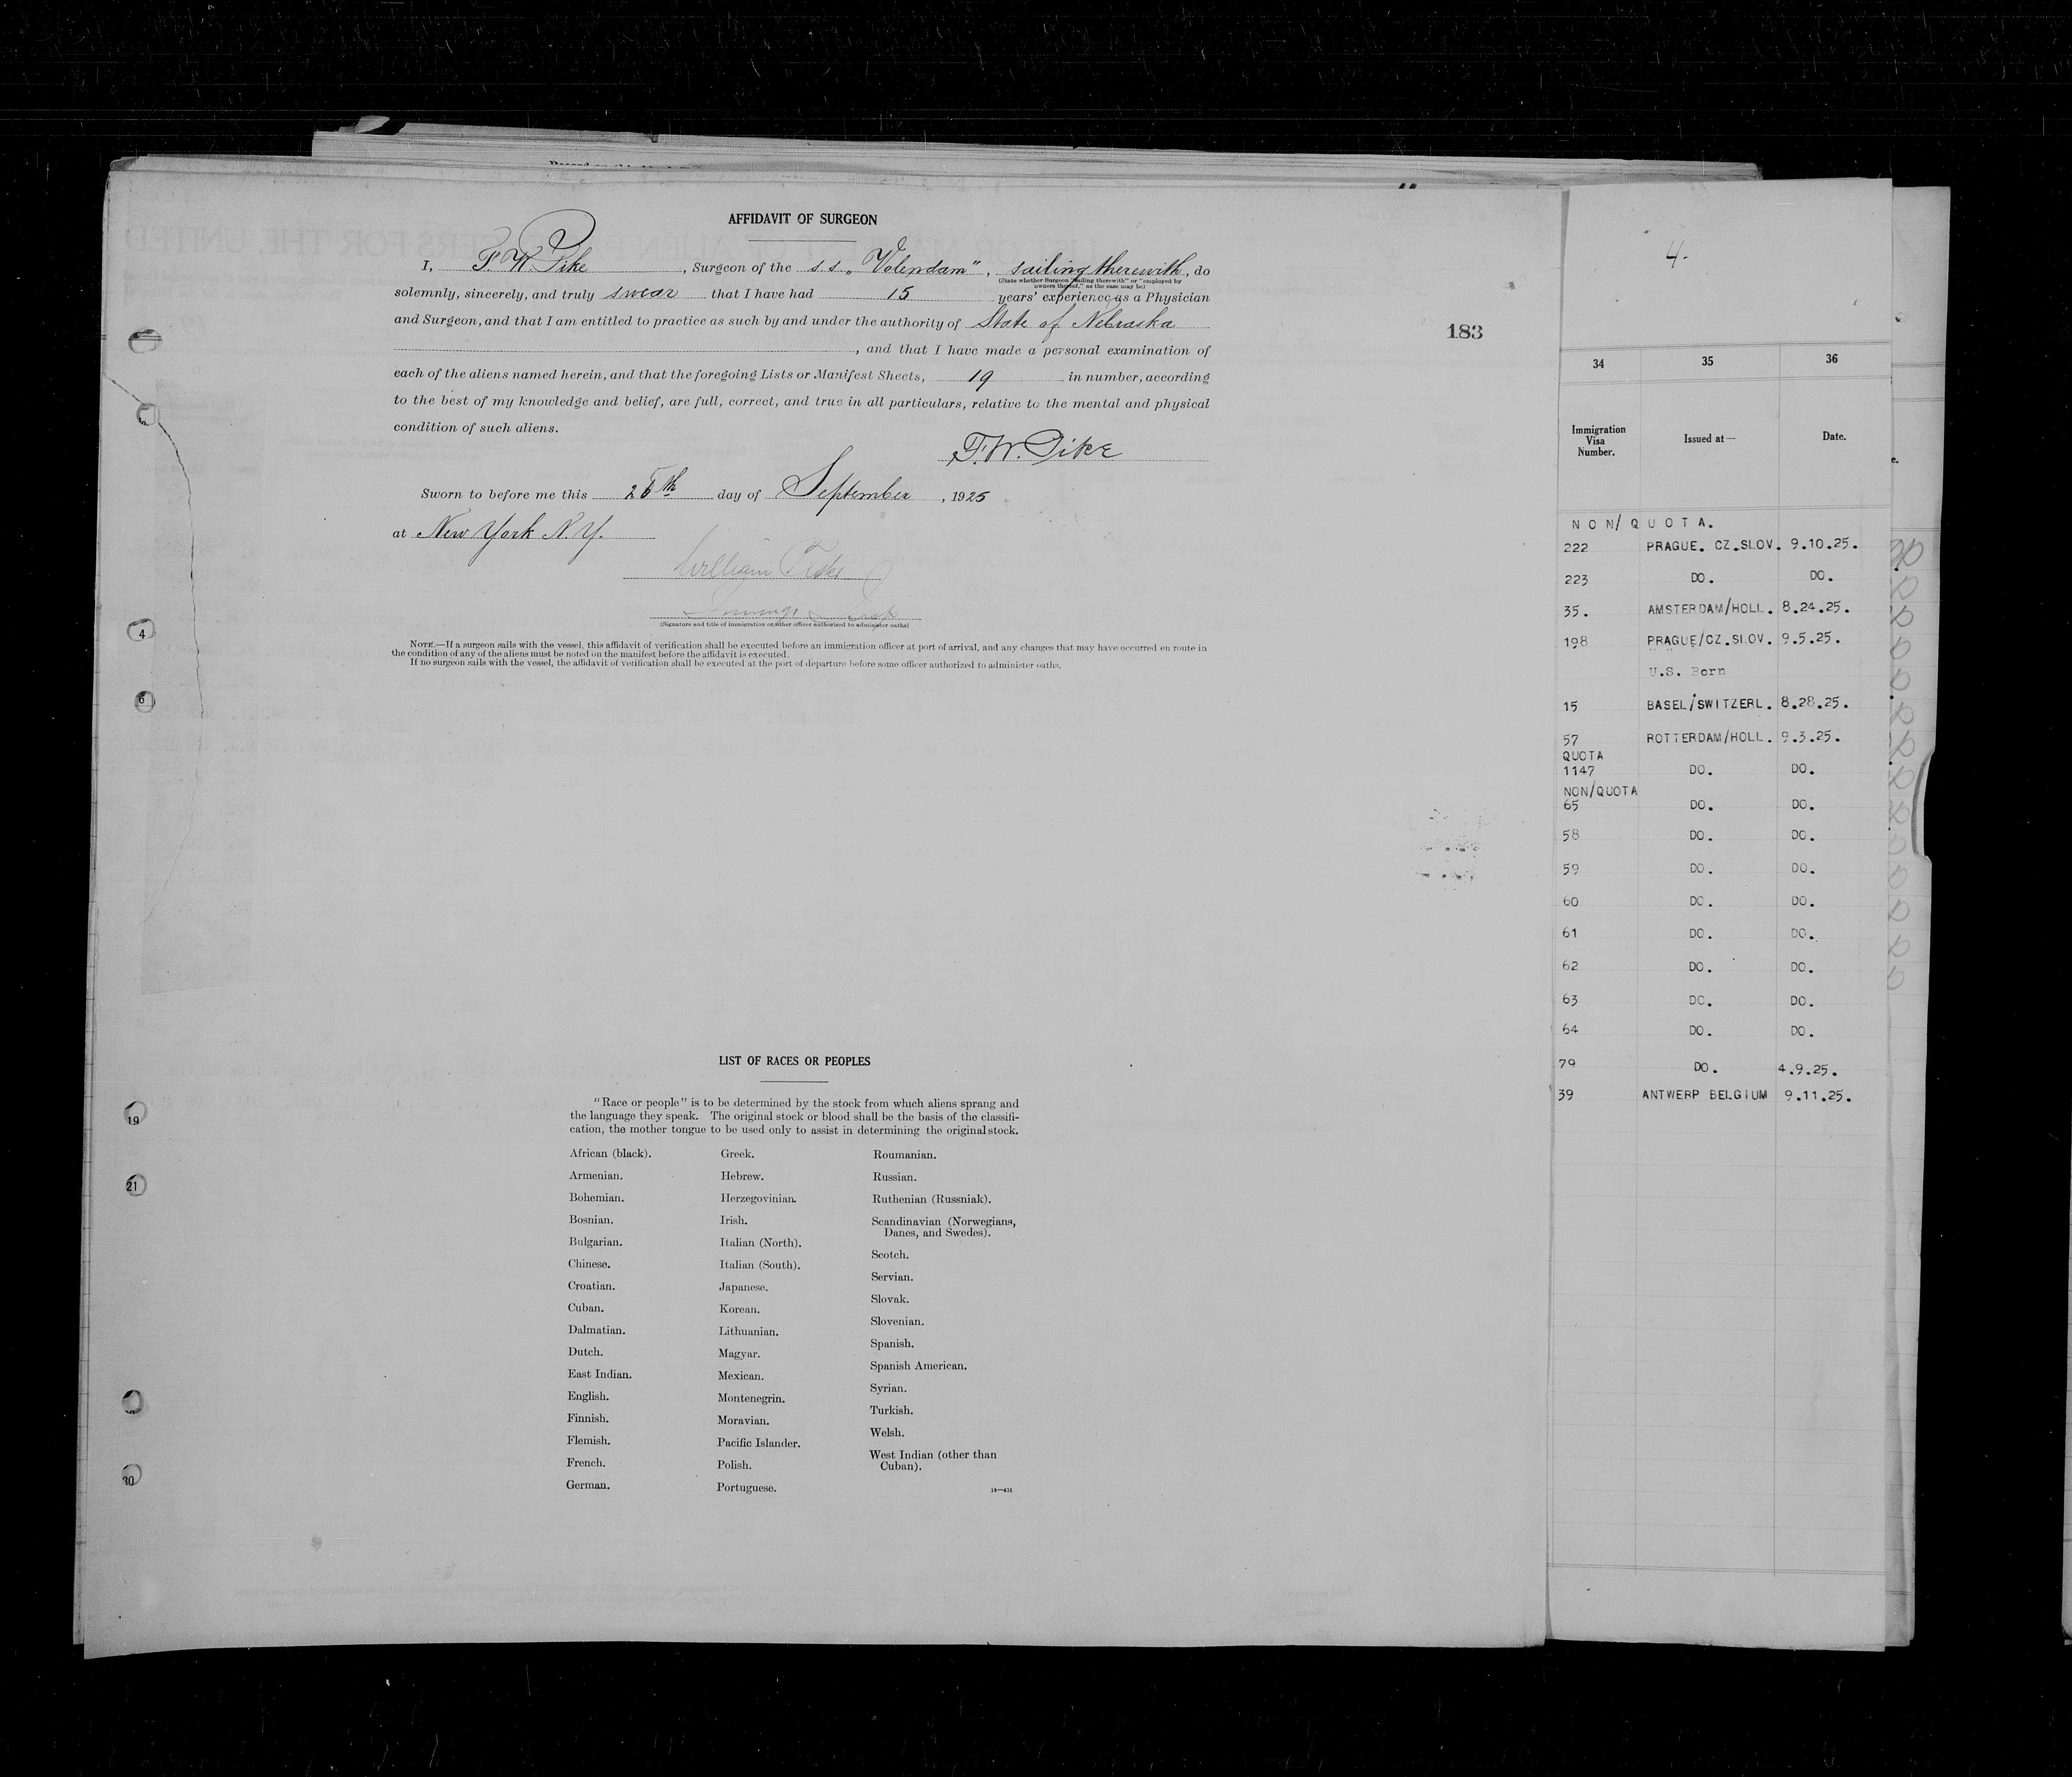 AFFIDAVIT OF SURGEON
I, F. W. Pike, Surgeon of the s.s. "Volendam", sailing therewith, do
(State whether Surgeon "sailing therewith" or "employed by
owners thereof," as the case may be)
solemnly, sincerely, and truly swear that I have had 15 years' experience as a Physician
and Surgeon, and that I am entitled to practice as such by and under the authority of State of Nebraska
, and that I have made a personal examination of
each of the aliens named herein, and that the foregoing Lists or Manifest Sheets, 19 in number, according
to the best of my knowledge and belief, are full, correct, and true in all particulars, relative to the mental and physical
condition of such aliens.
F. W. Pike
Sworn to before me this day of September, 1925
at New York N.Y.
William
(Signature and title of immigration or other officer authorized to administer oaths)
NOTE.—If a surgeon sails with the vessel, this affidavit of verification shall be executed before an immigration officer at port of arrival, and any changes that may have occurred en route in
the condition of any of the aliens must be noted on the manifest before the affidavit is executed.
If no surgeon sails with the vessel, the affidavit of verification shall be executed at the port of departure before some officer authorized to administer oaths.
183
4
6
19
21
30
LIST OF RACES OR PEOPLES
"Race or people" is to be determined by the stock from which aliens sprang and
the language they speak. The original stock or blood shall be the basis of the classifi-
cation, the mother tongue to be used only to assist in determining the original stock.
African (black).
Armenian.
Bohemian.
Bosnian.
Bulgarian.
Chinese.
Croatian.
Cuban.
Dalmatian.
Dutch.
East Indian.
English.
Finnish.
Flemish.
French.
German.
Greek.
Hebrew.
Herzegovinian.
Irish.
Italian (North).
Italian (South).
Japanese.
Korean.
Lithuanian.
Magyar.
Mexican.
Montenegrin.
Moravian.
Pacific Islander.
Polish.
Portuguese.
Roumanian.
Russian.
Ruthenian (Russniak).
Scandinavian (Norwegians,
Danes, and Swedes).
Scotch.
Servian.
Slovak.
Slovenian.
Spanish.
Spanish American.
Syrian.
Turkish.
Welsh.
West Indian (other than
Cuban).
4.
34 35 36
Immigration
Visa
Number.
Issued at—
Date.
NON/QUOTA.
222 PRAGUE. CZ.SLOV. 9.10.25.
223 DO. DO.
35. AMSTERDAM/HOLL. 8.24.25.
198 PRAGUE/CZ.SLOV. 9.5.25.
U.S. Born
15 BASEL/SWITZERL. 8.28.25.
57 ROTTERDAM/HOLL. 9.3.25.
QUOTA
1147 DO. DO.
NON/QUOTA
65 DO. DO.
58 DO. DO.
59 DO. DO.
60 DO. DO.
61 DO. DO.
62 DO. DO.
63 DO. DO.
64 DO. DO.
79 DO. 4.9.25.
39 ANTWERP BELGIUM 9.11.25.